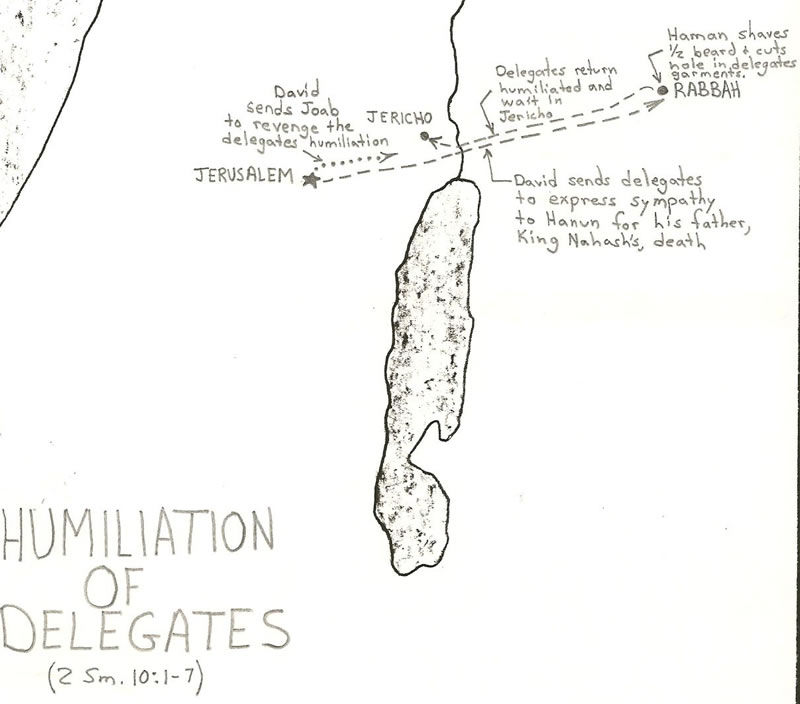 Haman shaves
1/2 beard & cuts
hole in delegates
garments.
RABBAH
Delegates return
humiliated and
wait in
Jericho
David
sends Joab
to revenge the
delegates humiliation
JERICHO
JERUSALEM
David sends delegates
to express sympathy
to Hanun for his father,
King Nahash's, death
HUMILIATION
OF
DELEGATES
(2 Sm. 10:1-7)